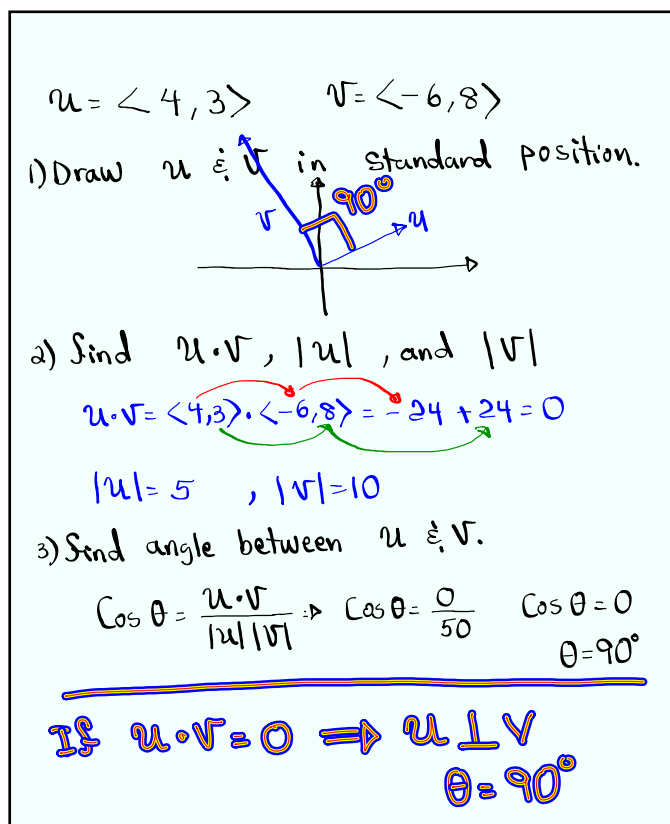 u = <4,3> v = <-6,8>
1) Draw u & v in standard position.
90°
v u
2) find u·v, |u|, and |v|
u·v = <4,3>·<-6,8> = -24 + 24 = 0
|u| = 5 , |v| = 10
3) find angle between u & v.
Cos θ = u·v / |u||v| ⇒ Cos θ = 0/50 Cos θ = 0
θ = 90°
If u·v = 0 ⇒ u ⊥ v
θ = 90°